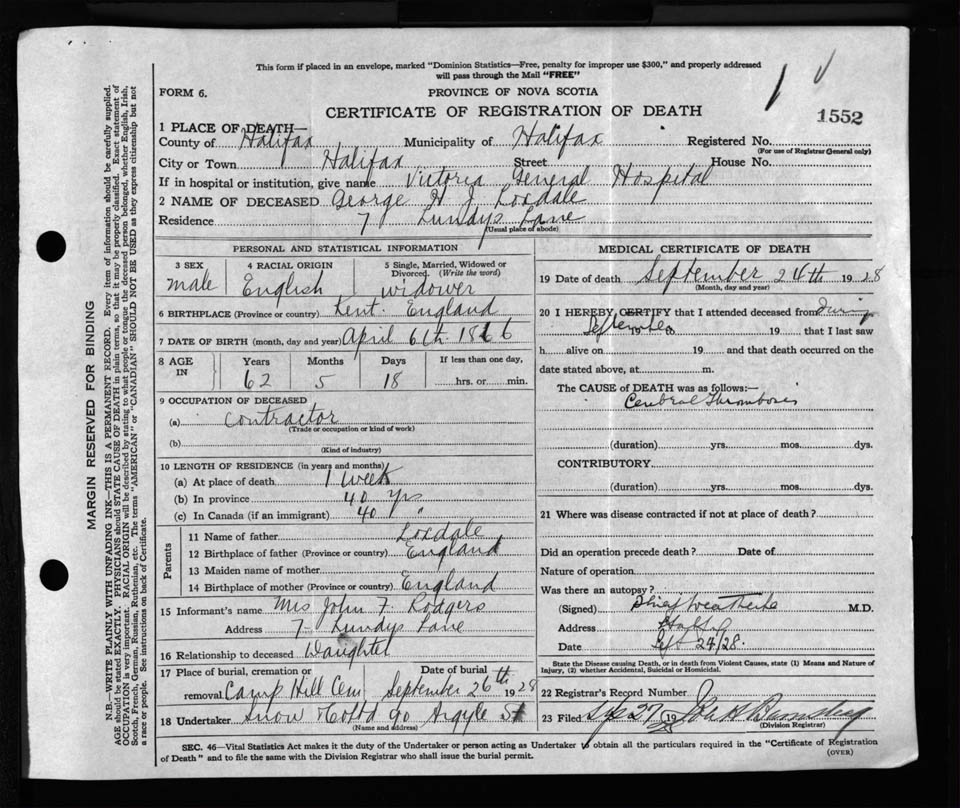 This form if placed in an envelope, marked "Dominion Statistics—Free, penalty for improper use $300," and properly addressed
will pass through the Mail "FREE"
FORM 6.
PROVINCE OF NOVA SCOTIA
CERTIFICATE OF REGISTRATION OF DEATH
1552
1 PLACE OF DEATH—
County of Halifax Municipality of Halifax Registered No.
(For use of Registrar General only)
City or Town Halifax Street House No.
If in hospital or institution, give name Victoria General Hospital
2 NAME OF DECEASED George H J Loxdale
Residence 7 Lundys Lane
(Usual place of abode)
PERSONAL AND STATISTICAL INFORMATION
3 SEX male
4 RACIAL ORIGIN English
5 Single, Married, Widowed or Divorced. (Write the word) widower
6 BIRTHPLACE (Province or country) Kent. England
7 DATE OF BIRTH (month, day and year) April 6th 1866
8 AGE IN Years 62 Months 5 Days 18 If less than one day, hrs. or min.
9 OCCUPATION OF DECEASED
(a) contractor
(Trade or occupation or kind of work)
(b)
(Kind of industry)
10 LENGTH OF RESIDENCE (in years and months)
(a) At place of death 1 week
(b) In province 40 yrs
(c) In Canada (if an immigrant) 40 "
Parents
11 Name of father Loxdale
12 Birthplace of father (Province or country) England
13 Maiden name of mother
14 Birthplace of mother (Province or country) England
15 Informant's name Mrs John F. Rodgers
Address 7 Lundys Lane
16 Relationship to deceased Daughter
17 Place of burial, cremation or removal Camp Hill Cem Date of burial September 26th 1928
18 Undertaker Snow & Co Ltd 90 Argyle St
(Name and address)
MEDICAL CERTIFICATE OF DEATH
19 Date of death September 24th 1928
(Month, day and year)
20 I HEREBY CERTIFY that I attended deceased from During
September 19 that I last saw
h alive on 19 and that death occurred on the
date stated above, at m.
The CAUSE of DEATH was as follows:—
Cerebral Thrombosis
(duration) yrs. mos. dys.
CONTRIBUTORY
(duration) yrs. mos. dys.
21 Where was disease contracted if not at place of death?
Did an operation precede death? Date of
Nature of operation
Was there an autopsy?
(Signed) M.D.
Address
Date Sept 24/28.
State the Disease causing Death, or in death from Violent Causes, state (1) Means and Nature of
Injury, (2) whether Accidental, Suicidal or Homicidal.
22 Registrar's Record Number
23 Filed Sep 27 1928
(Division Registrar)
SEC. 46—Vital Statistics Act makes it the duty of the Undertaker or person acting as Undertaker to obtain all the particulars required in the "Certificate of Registration
of Death" and to file the same with the Division Registrar who shall issue the burial permit.
(OVER)
MARGIN RESERVED FOR BINDING
N.B.—WRITE PLAINLY WITH UNFADING INK—THIS IS A PERMANENT RECORD. Every item of information should be carefully supplied.
AGE should be stated EXACTLY. PHYSICIANS should STATE CAUSE OF DEATH in plain terms, so that it may be properly classified. Exact statement of
OCCUPATION is very important. RACIAL ORIGIN will be described by stating to what people or tongue the deceased person belonged, whether English, Irish,
Scotch, French, German, Russian, Ruthenian, etc. The terms "AMERICAN" or "CANADIAN" SHOULD NOT BE USED as they express citizenship but not
a race or people. See instructions on back of Certificate.